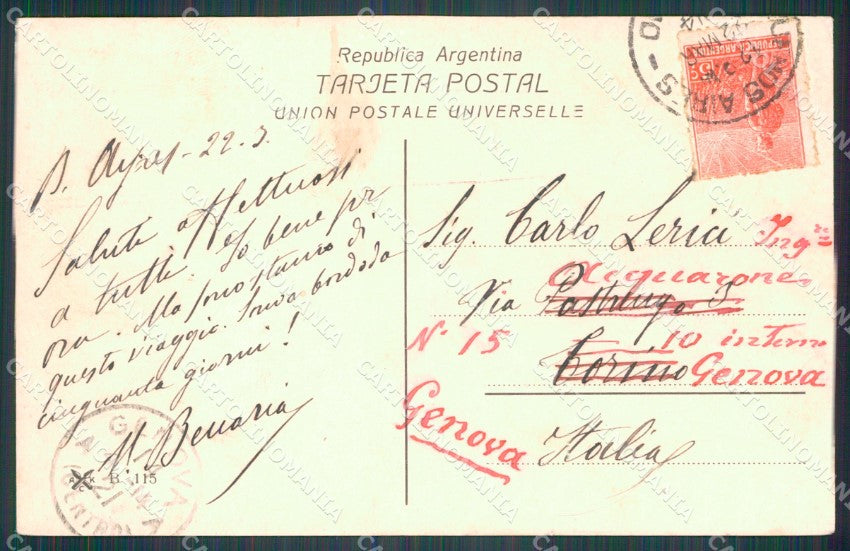 Republica Argentina
TARJETA POSTAL
UNION POSTALE UNIVERSELLE
BUENOS AIRES
REPUBLICA ARGENTINA
5c
B. Ayres - 22.3.
Saluti affettuosi
a tutti. Io bene per
ora. Ma
questo viaggio. bordo da
cinquanta giorni!
M.
B. 115
GENOVA
Sig. Carlo Lerici Ingre
Acquarone
Via
N. 15 10 interno
Torino Genova
Genova
Italia
CARTOLINOMANIA